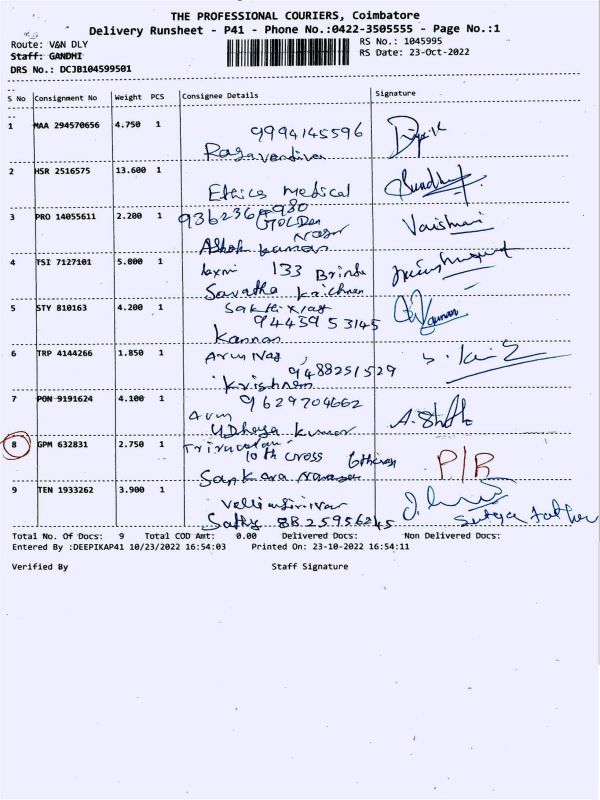 THE PROFESSIONAL COURIERS, Coimbatore
Delivery Runsheet - P41 - Phone No.:0422-3505555 - Page No.:1
Route: V&N DLY
RS No.: 1045995
Staff: GANDHI
RS Date: 23-Oct-2022
DRS No.: DCJB104599501
S No Consignment No Weight PCS Consignee Details Signature
1 MAA 294570656 4.750 1 9994145596
Ragavendiran
2 HSR 2516575 13.600 1
Ethics Medical
3 PRO 14055611 2.200 1 9362369980
GOLDen Nagar Vaishnavi
Ashok kumar
4 TSI 7127101 5.800 1 laxmi 133 Brinda
Savatha Krichnan
5 STY 810163 4.200 1 Sakthi Nag
9443953145
Kannan
6 TRP 4144266 1.850 1 Arun Nag
9488251529
Krishnam
7 PON 9191624 4.100 1 9629704662
Arun
UDhaya kumar
8 GPM 632831 2.750 1
10th Cross P/R
Sankara Narayanan
9 TEN 1933262 3.900 1
Sathy 8825956245 Father
Total No. Of Docs: 9 Total COD Amt: 0.00 Delivered Docs: Non Delivered Docs:
Entered By :DEEPIKAP41 10/23/2022 16:54:03 Printed On: 23-10-2022 16:54:11
Verified By Staff Signature